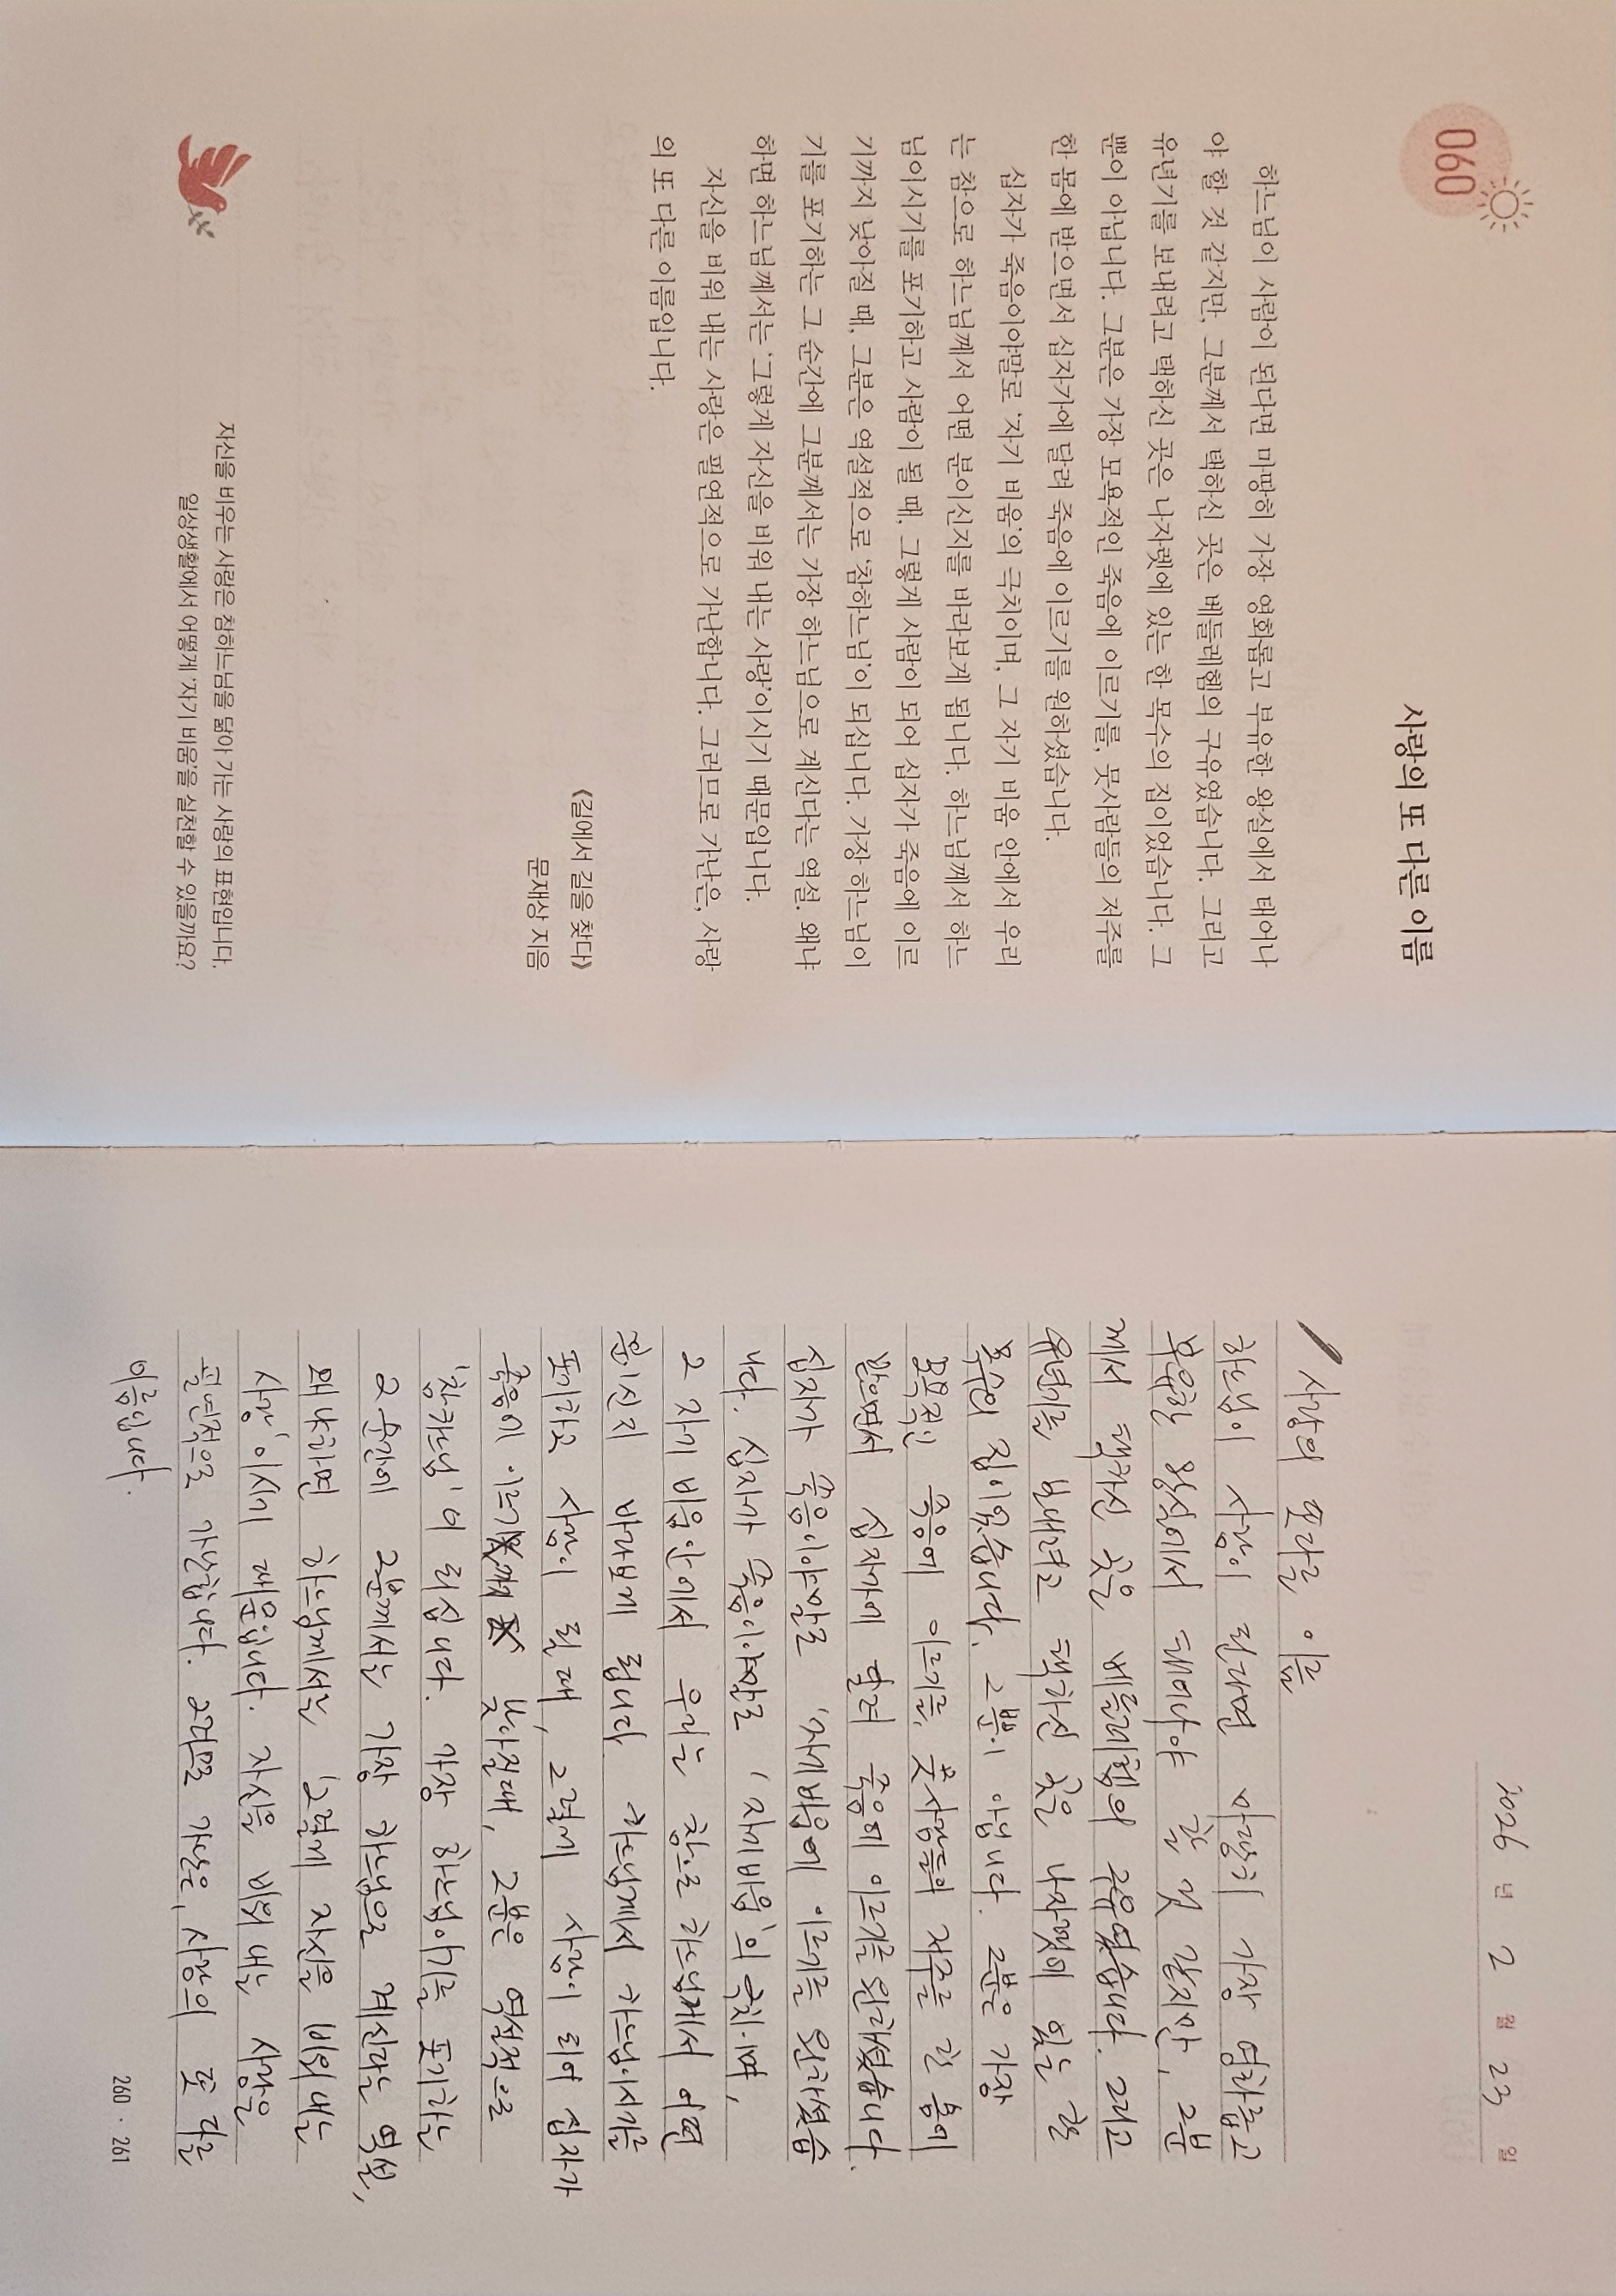 060
사랑의 또 다른 이름
하느님이 사람이 된다면 마땅히 가장 영화롭고 부유한 왕실에서 태어나
야 할 것 같지만, 그분께서 택하신 곳은 베들레헴의 구유였습니다. 그리고
유년기를 보내려고 택하신 곳은 나자렛에 있는 한 목수의 집이었습니다. 그
뿐이 아닙니다. 그분은 가장 모욕적인 죽음에 이르기를, 뭇사람들의 저주를
한 몸에 받으면서 십자가에 달려 죽음에 이르기를 원하셨습니다.
십자가 죽음이야말로 '자기 비움'의 극치이며, 그 자기 비움 안에서 우리
는 참으로 하느님께서 어떤 분이신지를 바라보게 됩니다. 하느님께서 하느
님이시기를 포기하고 사람이 될 때, 그렇게 사람이 되어 십자가 죽음에 이르
기까지 낮아질 때, 그분은 역설적으로 '참하느님'이 되십니다. 가장 하느님이
기를 포기하는 그 순간에 그분께서는 가장 하느님으로 계신다는 역설. 왜냐
하면 하느님께서는 '그렇게 자신을 비워 내는 사랑'이시기 때문입니다.
자신을 비워 내는 사랑은 필연적으로 가난합니다. 그러므로 가난은, 사랑
의 또 다른 이름입니다.
《길에서 길을 찾다》
문재상 지음
자신을 비우는 사랑은 참하느님을 닮아 가는 사랑의 표현입니다.
일상생활에서 어떻게 '자기 비움'을 실천할 수 있을까요?
2026 년 2 월 23 일
사랑의 또다른 이름
하느님이 사람이 된다면 마땅히 가장 영화롭고
부유한 왕실에서 태어나야 할 것 같지만, 그분
께서 택하신 곳은 베들레헴의 구유였습니다. 그리고
유년기를 보내려고 택하신 곳은 나자렛에 있는 한
목수의 집이었습니다. 그뿐이 아닙니다. 그분은 가장
모욕적인 죽음에 이르기를, 뭇사람들의 저주를 한 몸에
받으면서 십자가에 달려 죽음에 이르기를 원하셨습니다.
십자가 죽음이야말로 '자기비움에 이르기를 원하셨습
니다. 십자가 죽음이야말로 '자기비움'의 극치이며,
그 자기 비움 안에서 우리는 참으로 하느님께서 어떤
분이신지 바라보게 됩니다. 하느님께서 하느님이시기를
포기하고 사람이 될 때, 그렇게 사람이 되어 십자가
죽음에 이르기까지 낮아질때, 그분은 역설적으로
'참하느님'이 되십니다. 가장 하느님이기를 포기하는
그 순간에 그분께서는 가장 하느님으로 계신다는 역설,
왜냐하면 하느님께서는 '그렇게 자신을 비워 내는
사랑'이시기 때문입니다. 자신을 비워 내는 사랑은
필연적으로 가난합니다. 그러므로 가난은, 사랑의 또 다른
이름입니다.
260 · 261